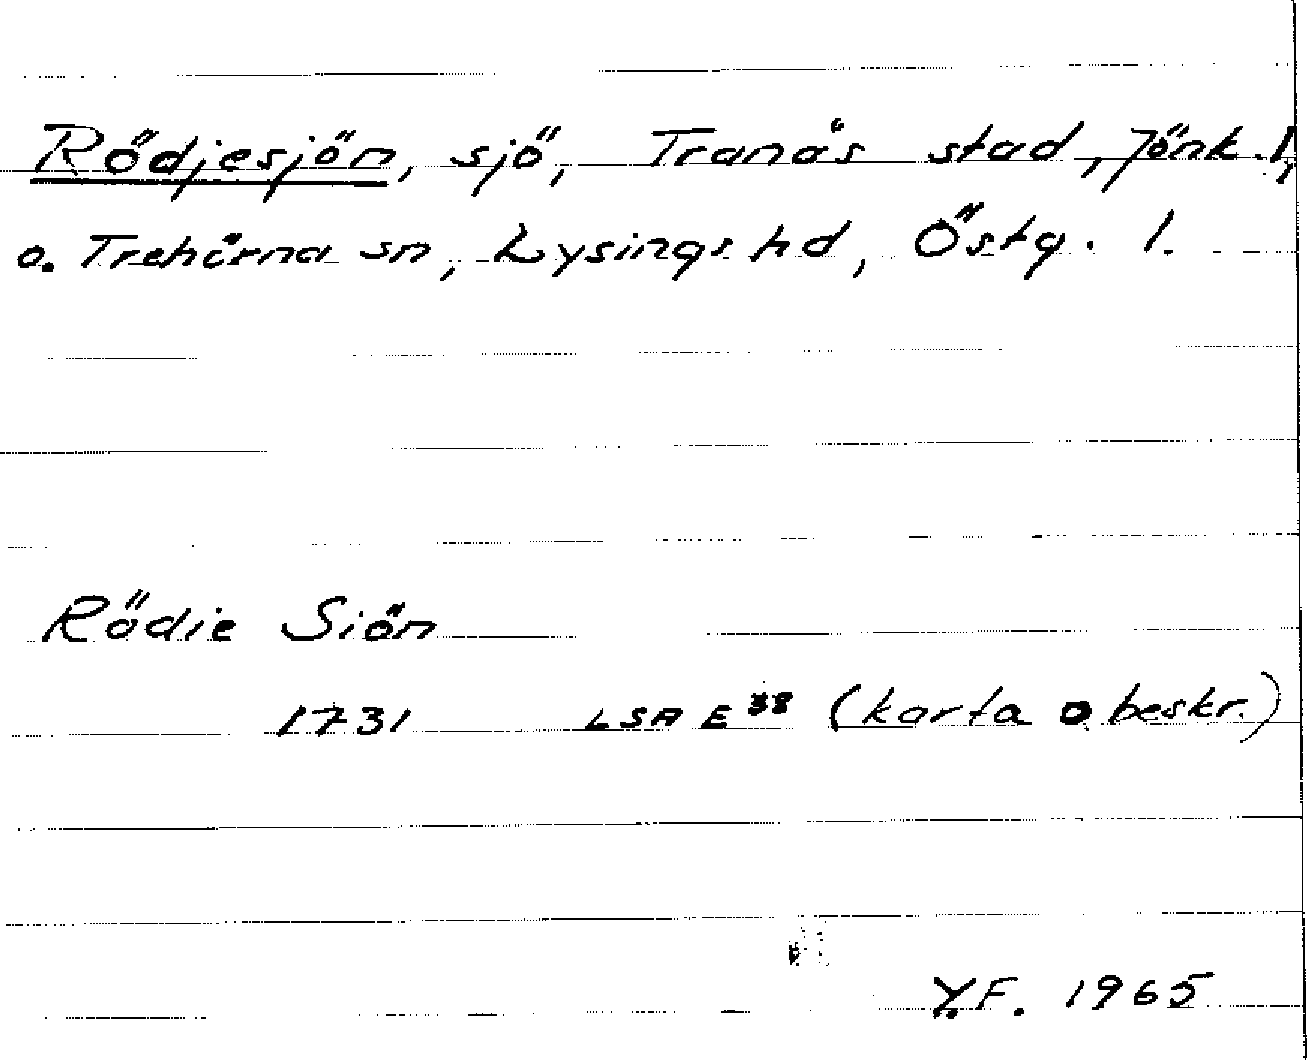 Rödjesjön, sjö, Tranås stad, Jönk. l,
o. Trehörna sn, Lysings hd, Östg. l.
Rödie Siön
1731 LSA E 38 (karta o beskr.)
Y.F. 1965